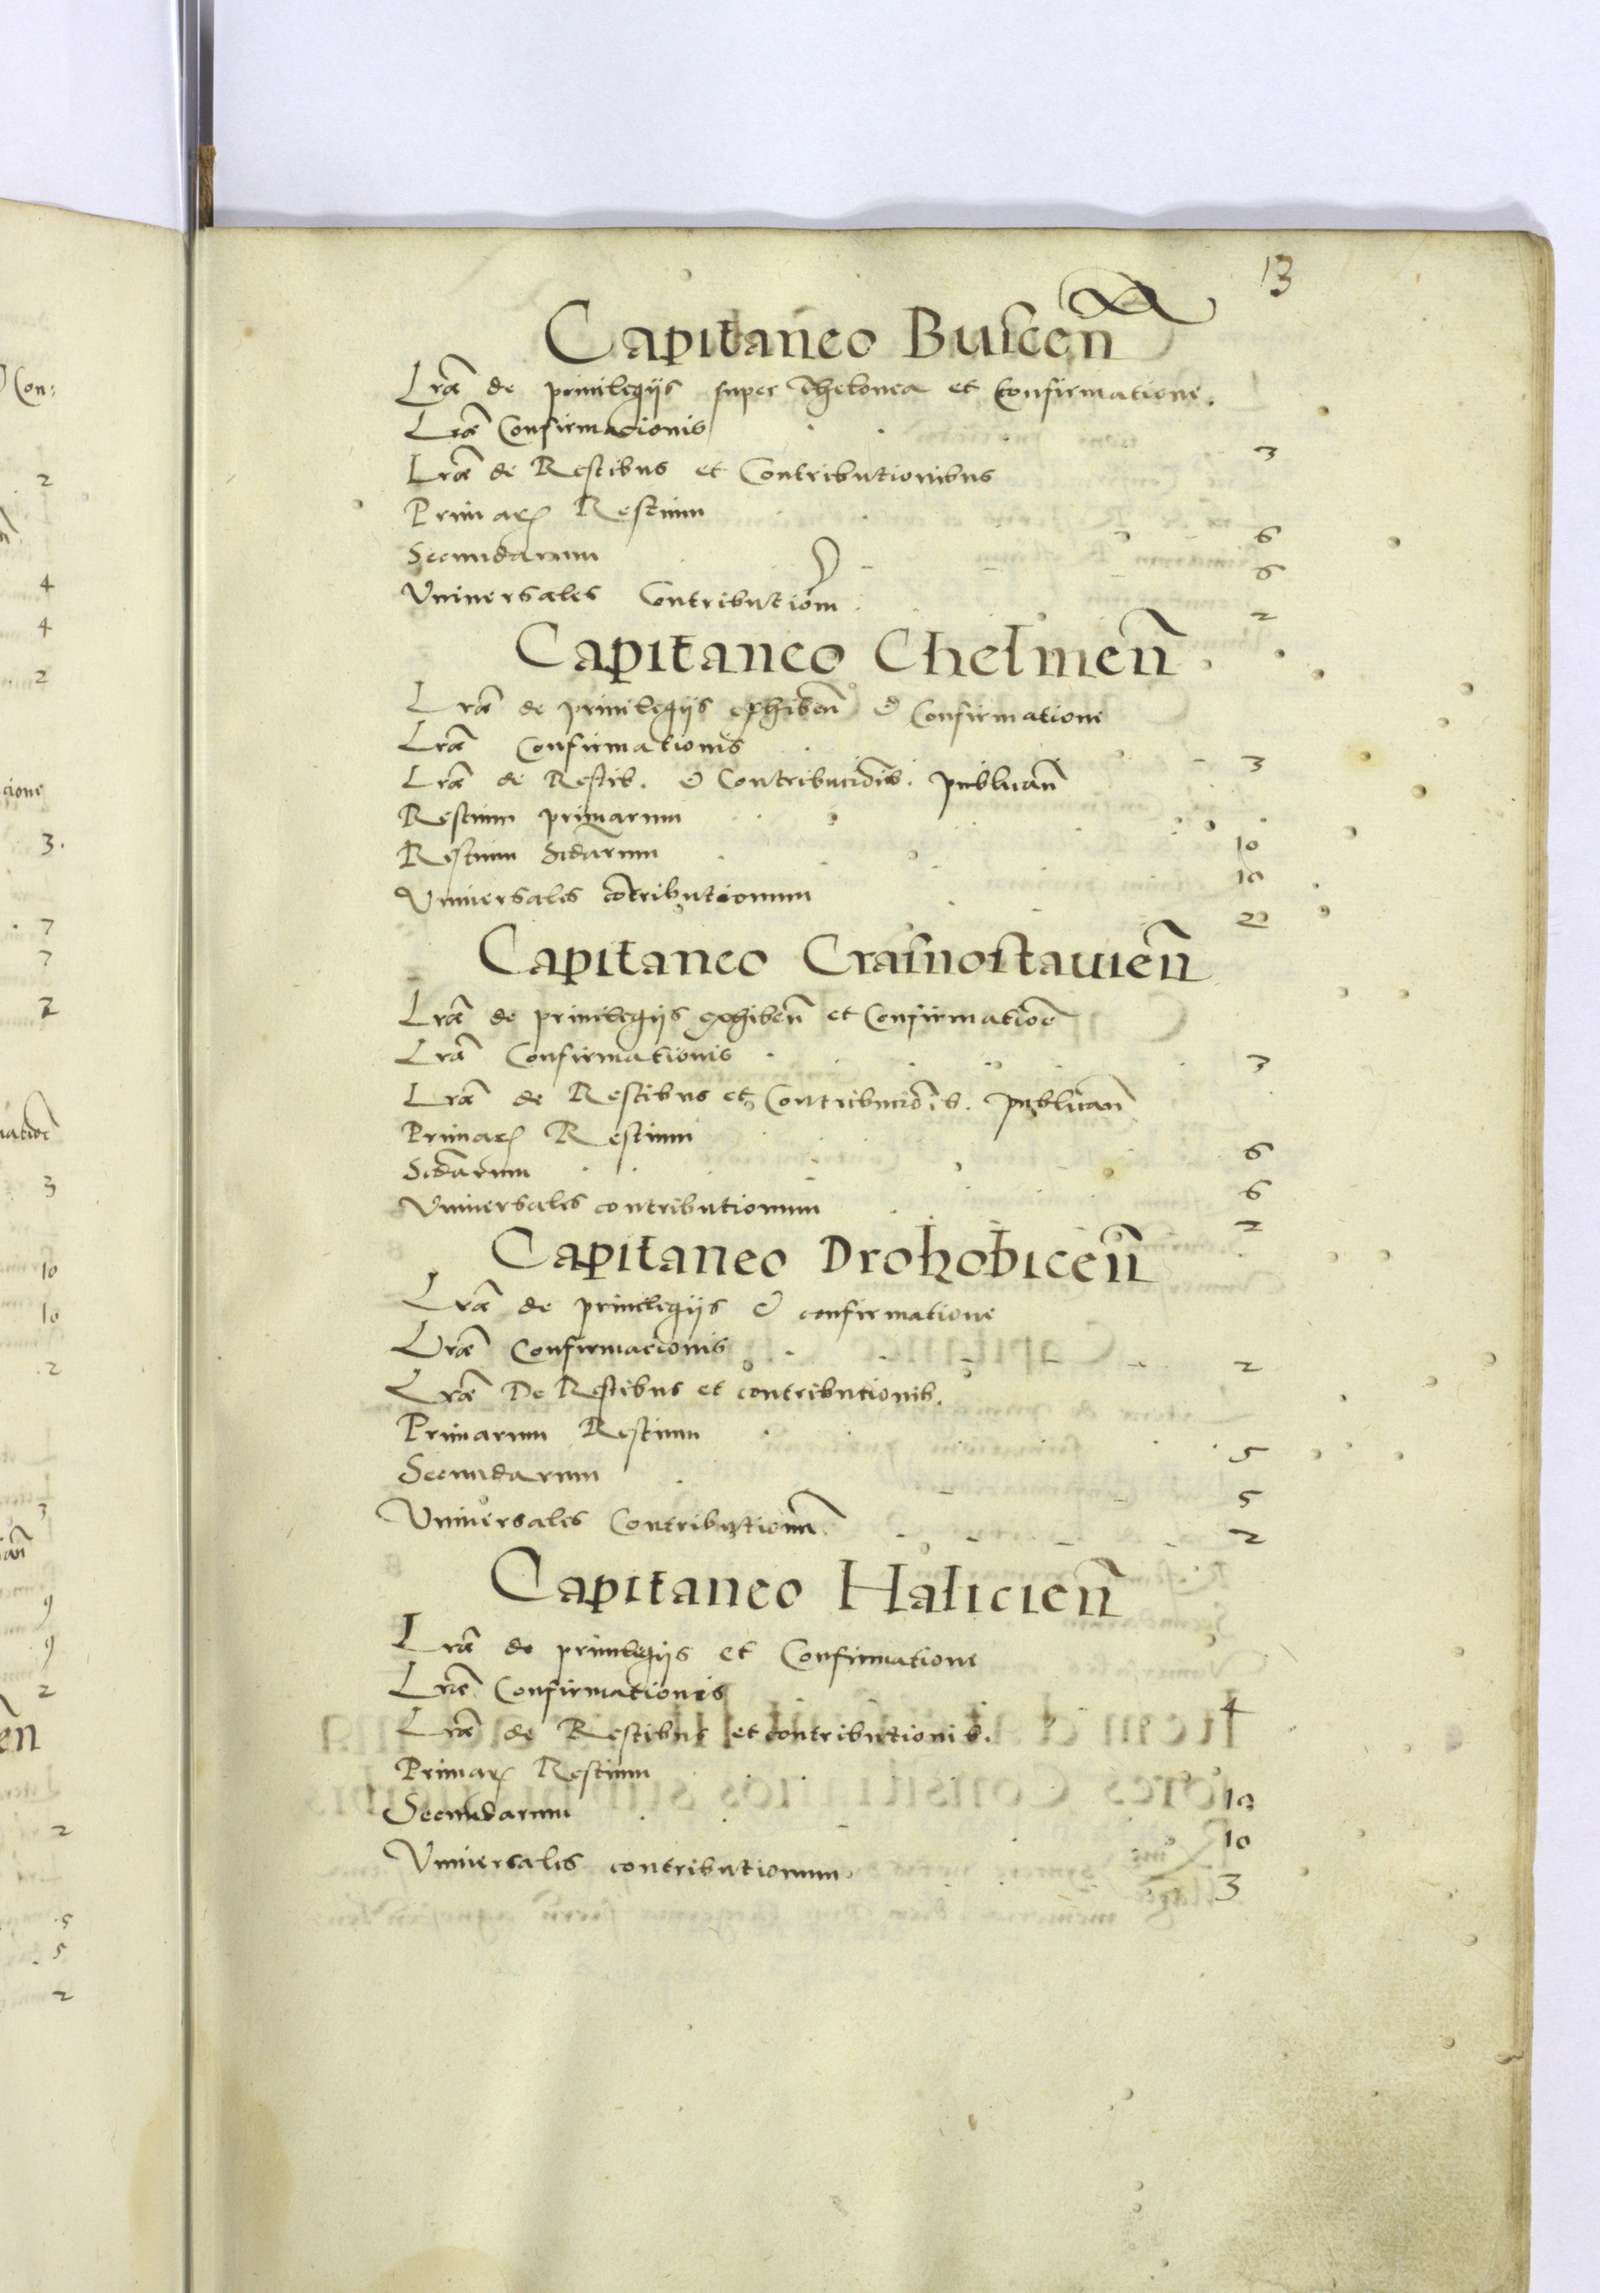 13
Capitaneo Buscen̄
Lrā de privilegijs super Thelonea et Confirmatione.
Lrā Confirmacionis 3
Lrā de Restibus et Contributionibus
Primaꝝ Restium 6
Secundarum 6
Vniversales Contributionū 2
Capitaneo Chelmen̄
Lrā de privilegijs exhiben̄ & Confirmatione
Lrā Confirmationis 3
Lrā de Restib. & Contribucionib. publican̄
Restium primarum 10
Restium Scdarum 10
Vniversales cōtributionum 2
Capitaneo Crasnostavien̄
Lrā de privilegijs exhiben̄ et Confirmatioē
Lrā Confirmationis 3
Lrā de Restibus et Contribucioīb. publican̄
Primaꝝ Restium 6
Scdarum 6
Vniversales contributionum 2
Capitaneo Drohobicen̄
Lrā de privilegijs & confirmatione
Lrā Confirmacionis 2
Lrā De Restibus et contributionib.
Primarum Restium 5
Secundarum 5
Vniversales Contributionū 2
Capitaneo Halicien̄
Lrā de privilegijs et Confirmatione
Lrā Confirmationis 4
Lrā de Restibus et contributionib.
Primaꝝ Restium 10
Secundarum 10
Vniversales contributionum 3